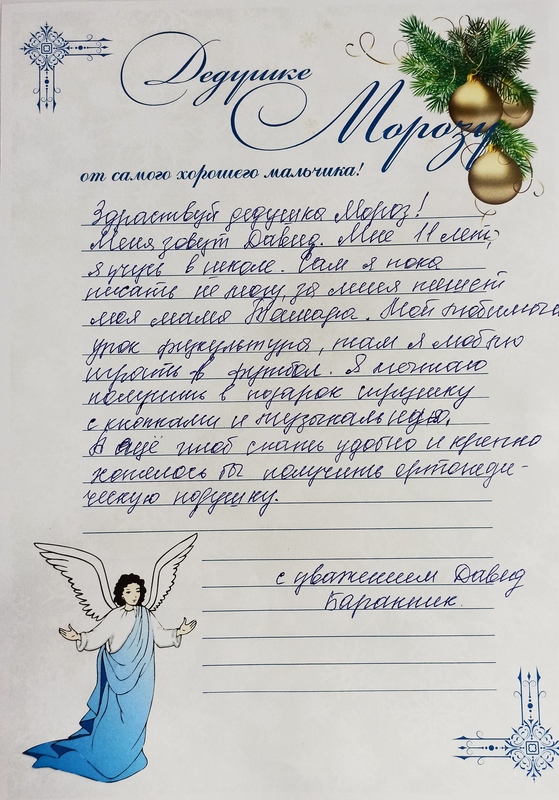 Дедушке
Морозу
от самого хорошего мальчика!
Здраствуй дедушка Мороз!
Меня зовут Давид. Мне 11 лет,
я учусь в школе. Сам я пока
писать не могу, за меня пишет
моя мама Тамара. Мой любимый
урок физкультура, там я люблю
играть в футбол. Я мечтаю
получить в подарок игрушку
с кнопками и музыкальную.
А ещё чтоб спать удобно и крепко
хотелось бы получить ортопеди-
ческую подушку.
с уважением Давид
Баранник.